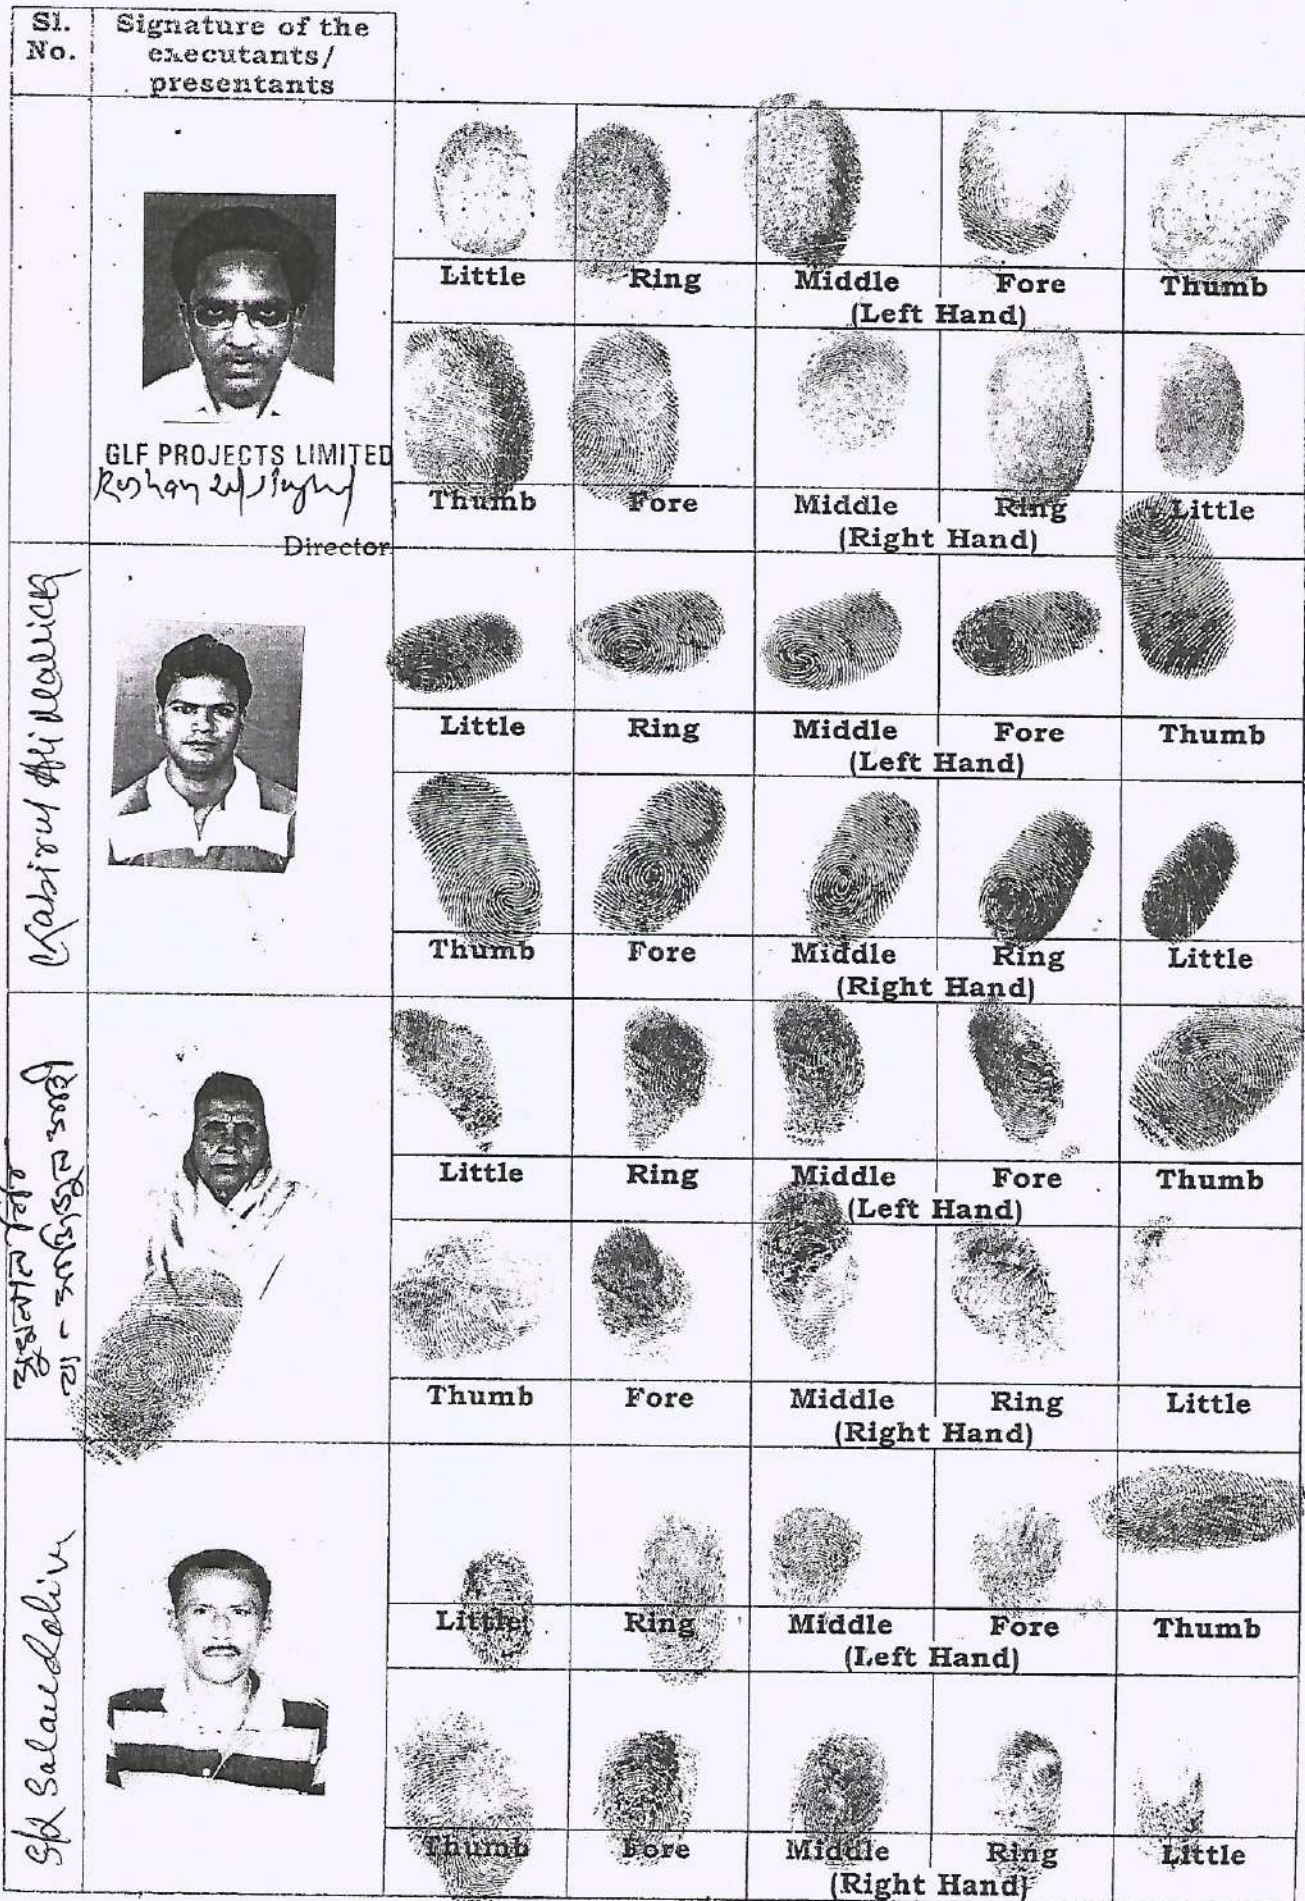 Sl. No.
Signature of the
executants/
presentants
Little Ring Middle Fore Thumb
(Left Hand)
GLF PROJECTS LIMITED
Roshan
Thumb Fore Middle Ring Little
(Right Hand)
Director
Kabirul Ali Mallick
Little Ring Middle Fore Thumb
(Left Hand)
Thumb Fore Middle Ring Little
(Right Hand)
Little Ring Middle Fore Thumb
(Left Hand)
Thumb Fore Middle Ring Little
(Right Hand)
Sk Salauddin
Little Ring Middle Fore Thumb
(Left Hand)
Thumb Fore Middle Ring Little
(Right Hand)